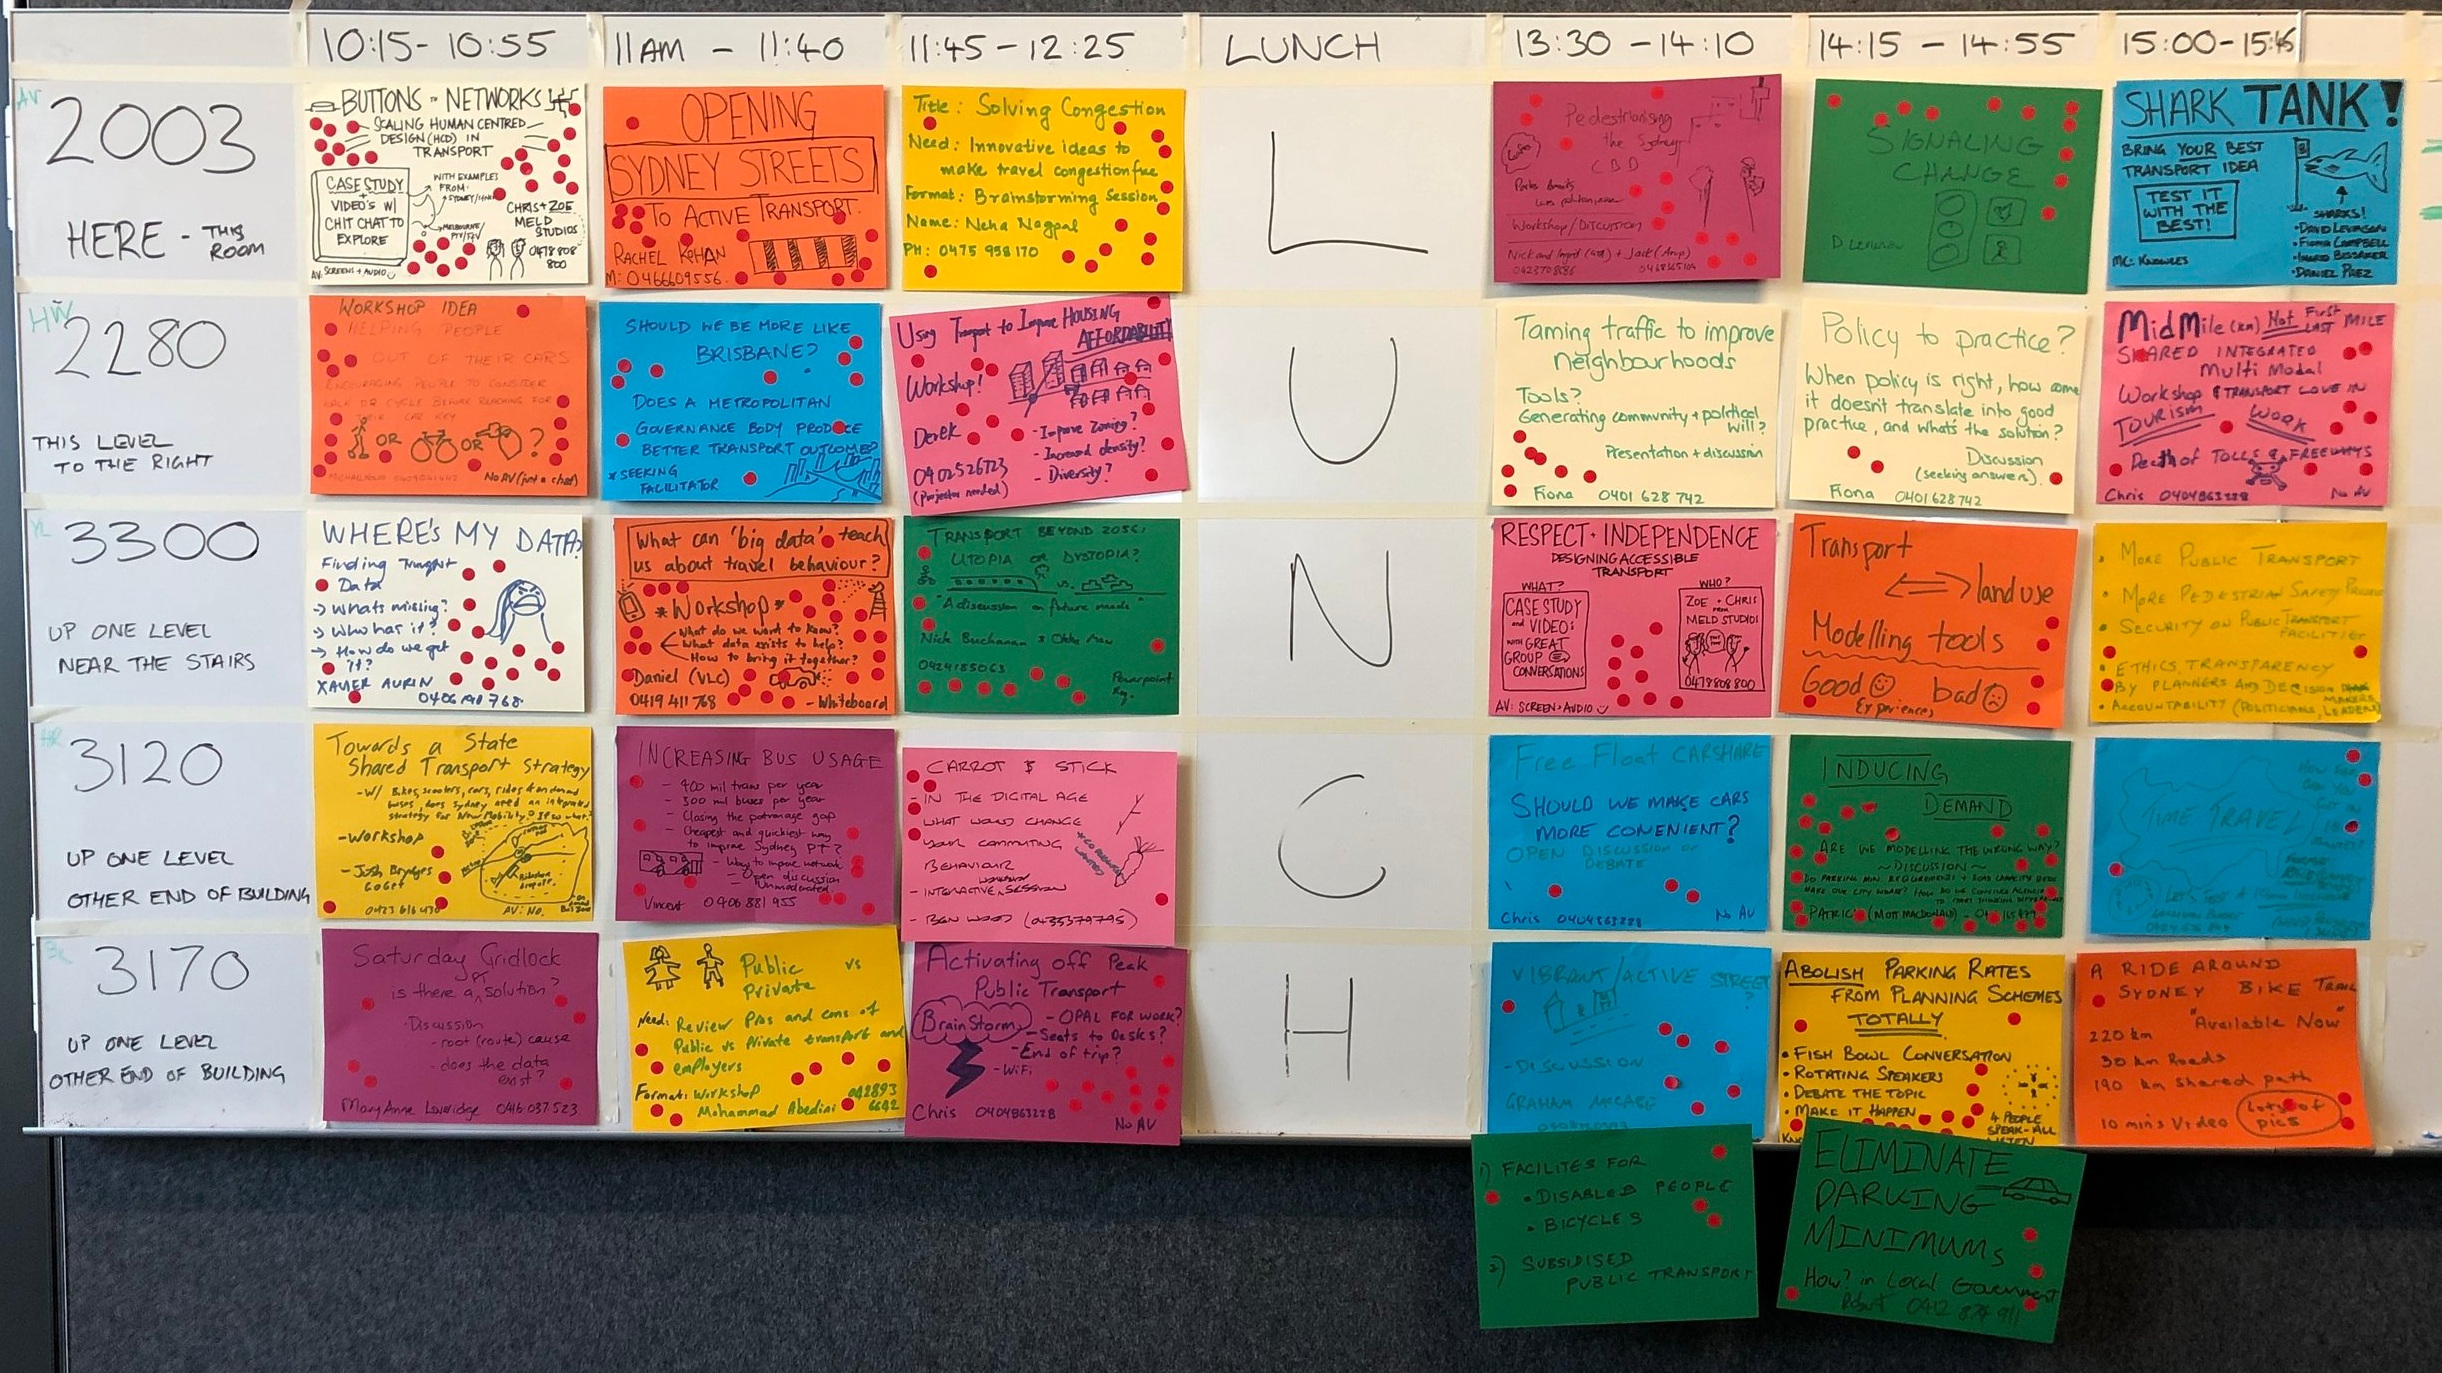 10:15-10:55
11AM - 11:40
11:45-12:25
LUNCH
13:30-14:10
14:15 - 14:55
15:00-15:45
AV
2003
HERE - THIS
ROOM
BUTTONS TO NETWORKS
SCALING HUMAN CENTRED
DESIGN (HCD) IN
TRANSPORT
CASE STUDY
VIDEO'S W/
CHIT CHAT TO
EXPLORE
WITH EXAMPLES
FROM
CHRIS + ZOE
MELD
STUDIOS
0478 808
800
AV: SCREENS + AUDIO
OPENING
SYDNEY STREETS
TO ACTIVE TRANSPORT.
RACHEL KOHAN
M: 0466609556
Title: Solving Congestion
Need: Innovative ideas to
make travel congestion free
Format: Brainstorming Session
Name: Neha Nagpal
PH: 0475 958 170
L
Pedestrianising
the Sydney
CBD
Workshop/Discussion
SIGNALING
CHANGE
SHARK TANK!
BRING YOUR BEST
TRANSPORT IDEA
TEST IT
WITH THE
BEST!
SHARKS!
• DAVID LEVINSON
• FIONA CAMPBELL
• DANIEL PAEZ
MC: KNOWLES
HW
2280
THIS LEVEL
TO THE RIGHT
WORKSHOP IDEA
HELPING PEOPLE
OUT OF THEIR CARS
ENCOURAGING PEOPLE TO CONSIDER
WALK OR CYCLE BEFORE REACHING FOR
THEIR CAR KEY
OR OR ?
No AV (just a chat)
SHOULD WE BE MORE LIKE
BRISBANE?
DOES A METROPOLITAN
GOVERNANCE BODY PRODUCE
BETTER TRANSPORT OUTCOMES?
*SEEKING
FACILITATOR
Using Transport to Improve HOUSING
AFFORDABILITY
Workshop!
Derek
0402526723
(Projector needed)
- Improve zoning?
- Increased density?
- Diversity?
U
Taming traffic to improve
neighbourhoods
Tools?
Generating community + political
will?
Presentation + discussion
Fiona 0401 628 742
Policy to practice?
When policy is right, how come
it doesn't translate into good
practice, and what's the solution?
Discussion
(seeking answers).
Fiona 0401 628 742
MidMile (km) Not First
LAST MILE
SHARED INTEGRATED
Multi Modal
Workshop & TRANSPORT LOVE IN
TOURISM WORK
Death of TOLLS & FREEWAYS
Chris 0404863228 No AV
YL
3300
UP ONE LEVEL
NEAR THE STAIRS
WHERE'S MY DATA?
Finding Transport
Data
→ Whats missing?
→ Who has it?
→ How do we get
it?
XAVIER AURIN
What can 'big data' teach
us about travel behaviour?
*Workshop*
What do we want to know?
What data exists to help?
How to bring it together?
Daniel (VLC)
0419 411 768
- Whiteboard
TRANSPORT BEYOND 2056:
UTOPIA OR DYSTOPIA?
VS.
"A discussion on future needs"
Nick Buchanan
Powerpoint
Req.
N
RESPECT + INDEPENDENCE
DESIGNING ACCESSIBLE
TRANSPORT
WHAT?
CASE STUDY
and VIDEO'S
WITH GREAT
GROUP
CONVERSATIONS
WHO?
ZOE + CHRIS
FROM
MELD STUDIOS
0478808800
AV: SCREEN + AUDIO
Transport
land use
Modelling tools
Good bad
Experiences
• MORE PUBLIC TRANSPORT
• MORE PEDESTRIAN SAFETY
• SECURITY ON PUBLIC TRANSPORT
FACILITIES
• ETHICS, TRANSPARENCY
BY PLANNERS AND DECISION
MAKERS
• ACCOUNTABILITY (POLITICIANS, LEADERS)
HR
3120
UP ONE LEVEL
OTHER END OF BUILDING
Towards a State
Shared Transport Strategy
- W/ Bikes, scooters, cars, rides & on demand
buses, does Sydney need an integrated
strategy for New Mobility? If so what?
- Workshop
- Josh Brydges
GoGet
0423 616 430
AV: No.
INCREASING BUS USAGE
- 400 mil trains per year
- 300 mil buses per year
- Closing the patronage gap
- Cheapest and quickest way
to improve Sydney PT?
- Ways to improve network
- Open discussion
- Unmoderated
Vincent 0406 881 955
CARROT & STICK
- IN THE DIGITAL AGE
WHAT WOULD CHANGE
YOUR COMMUTING
BEHAVIOUR
- INTERACTIVE SESSION
- BEN WOOD (0435379795)
C
Free Float CARSHARE
SHOULD WE MAKE CARS
MORE CONVENIENT?
OPEN DISCUSSION or
DEBATE
Chris 0404863228 No AV
INDUCING
DEMAND
ARE WE MODELLING THE WRONG WAY?
~ DISCUSSION ~
PATRICK (MOTT MACDONALD)
TIME TRAVEL
BR
3170
UP ONE LEVEL
OTHER END OF BUILDING
Saturday Gridlock
is there a PT solution?
• Discussion
- root (route) cause
- does the data
exist?
Mary Anne Loveridge 0416 037 523
Public vs
Private
Need: Review Pros and cons of
Public vs Private transport and
employers
Format: Workshop
Mohammad Abedini
042893
6642
Activating off Peak
Public Transport
BrainStorm
- OPAL FOR WORK?
- Seats to Desks?
- End of trip?
- WiFi
Chris 0404863228
No AV
H
VIBRANT/ACTIVE STREET
?
- DISCUSSION
GRAHAM MCCABE
ABOLISH PARKING RATES
FROM PLANNING SCHEMES
TOTALLY
• FISH BOWL CONVERSATION
• ROTATING SPEAKERS
• DEBATE THE TOPIC
• MAKE IT HAPPEN
4 PEOPLE
SPEAK - ALL
LISTEN
A RIDE AROUND
SYDNEY BIKE TRAIL
"Available Now"
220 km
30 km Roads
190 km shared path
10 mins Video
Lots of
pics
1) FACILITES FOR
• DISABLED PEOPLE
• BICYCLES
2) SUBSIDISED
PUBLIC TRANSPORT
ELIMINATE
PARKING
MINIMUMS
How? in Local Government
Robert 0412 874 911